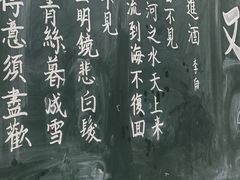 進酒 李白
不見
河之水天上來
流到海不復回
不見
明鏡悲白髮
青絲暮成雪
得意須盡歡